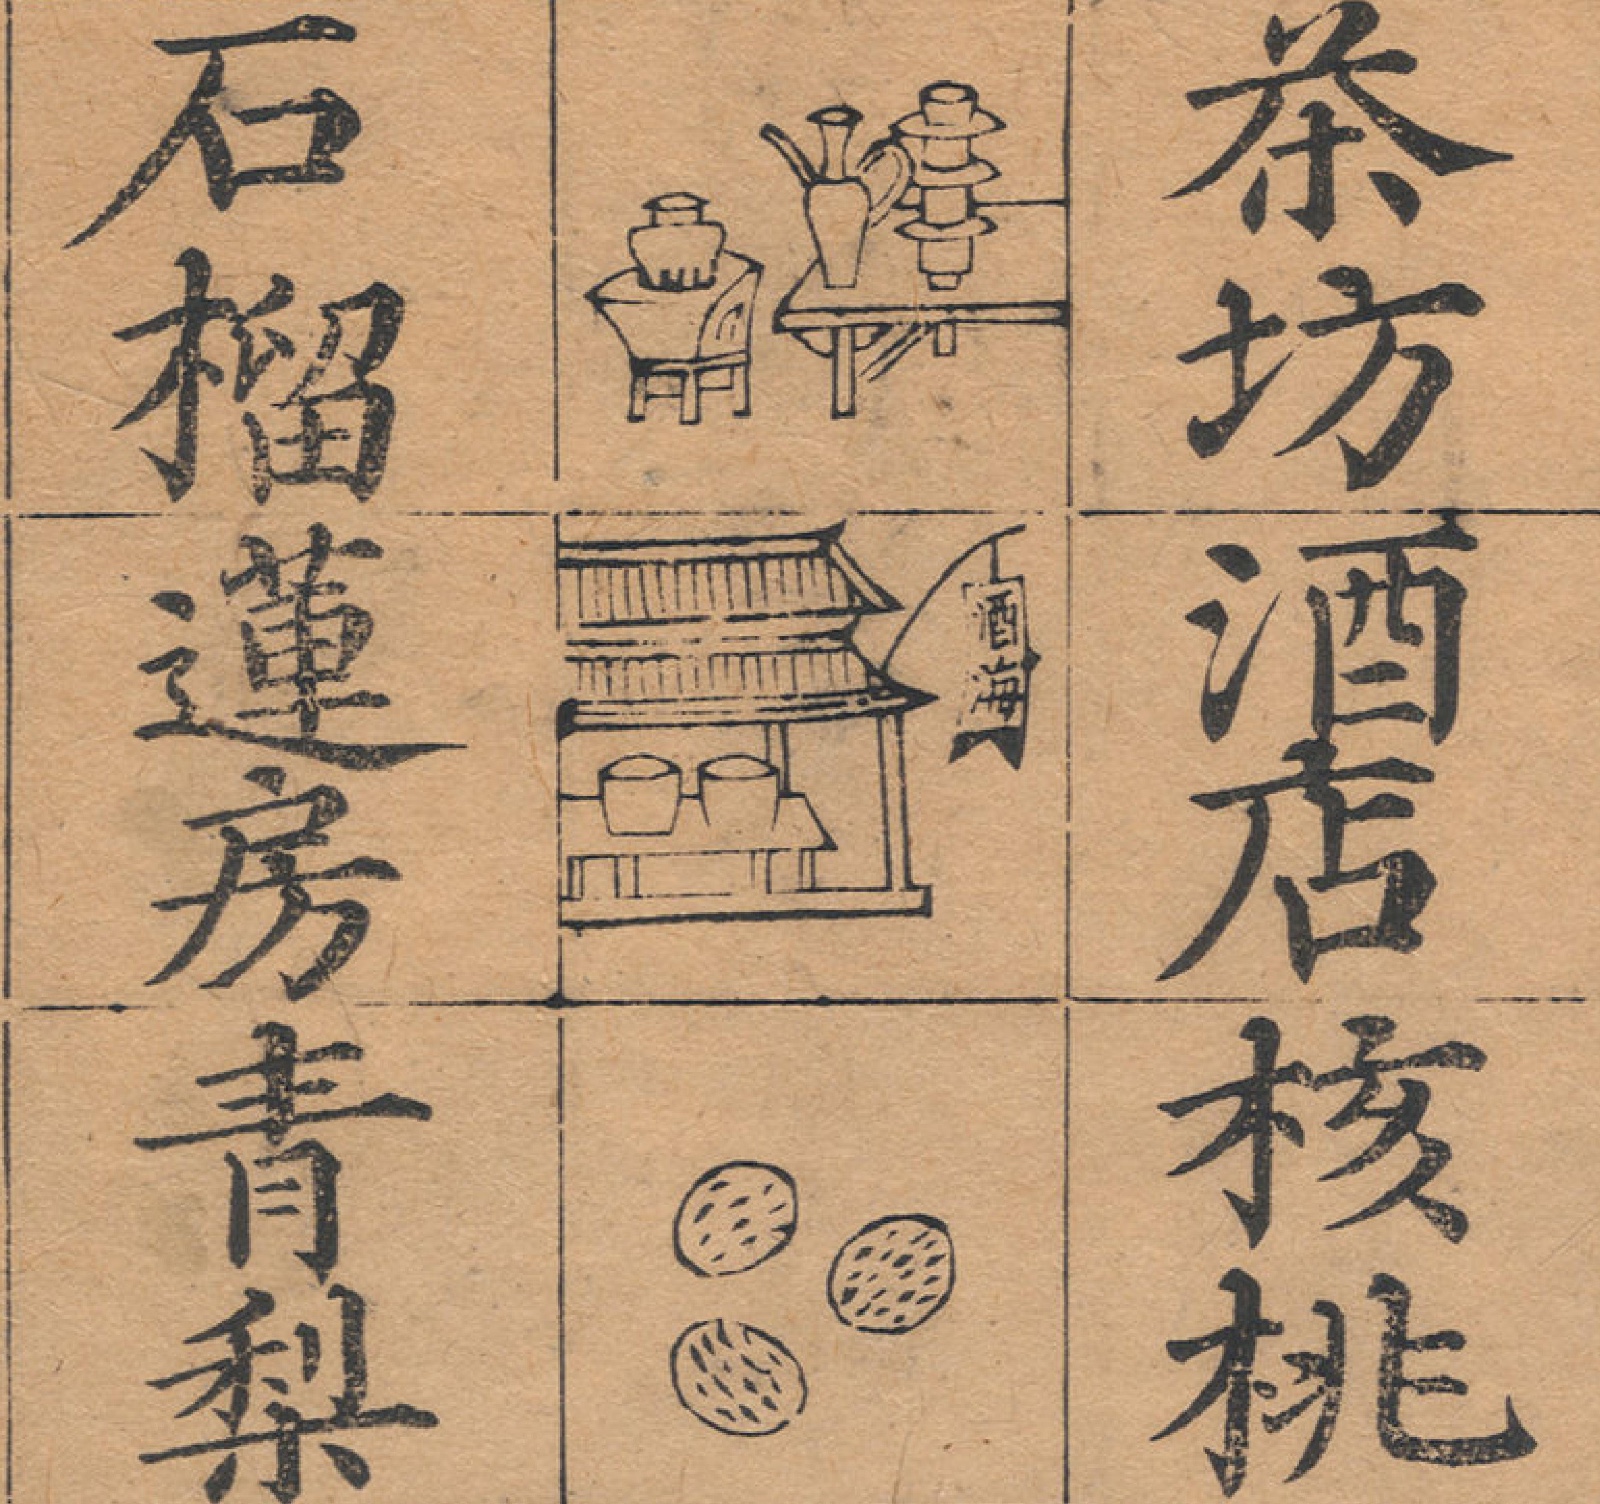 茶坊
酒店
核桃
酒海
石榴
蓮房
青梨